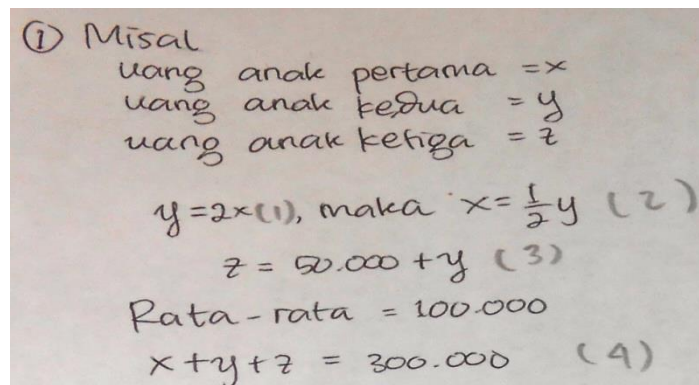 ① Misal
uang anak pertama = x
uang anak kedua = y
uang anak ketiga = z
y = 2x (1), maka x = 1/2 y (2)
z = 50.000 + y (3)
Rata-rata = 100.000
x + y + z = 300.000 (4)